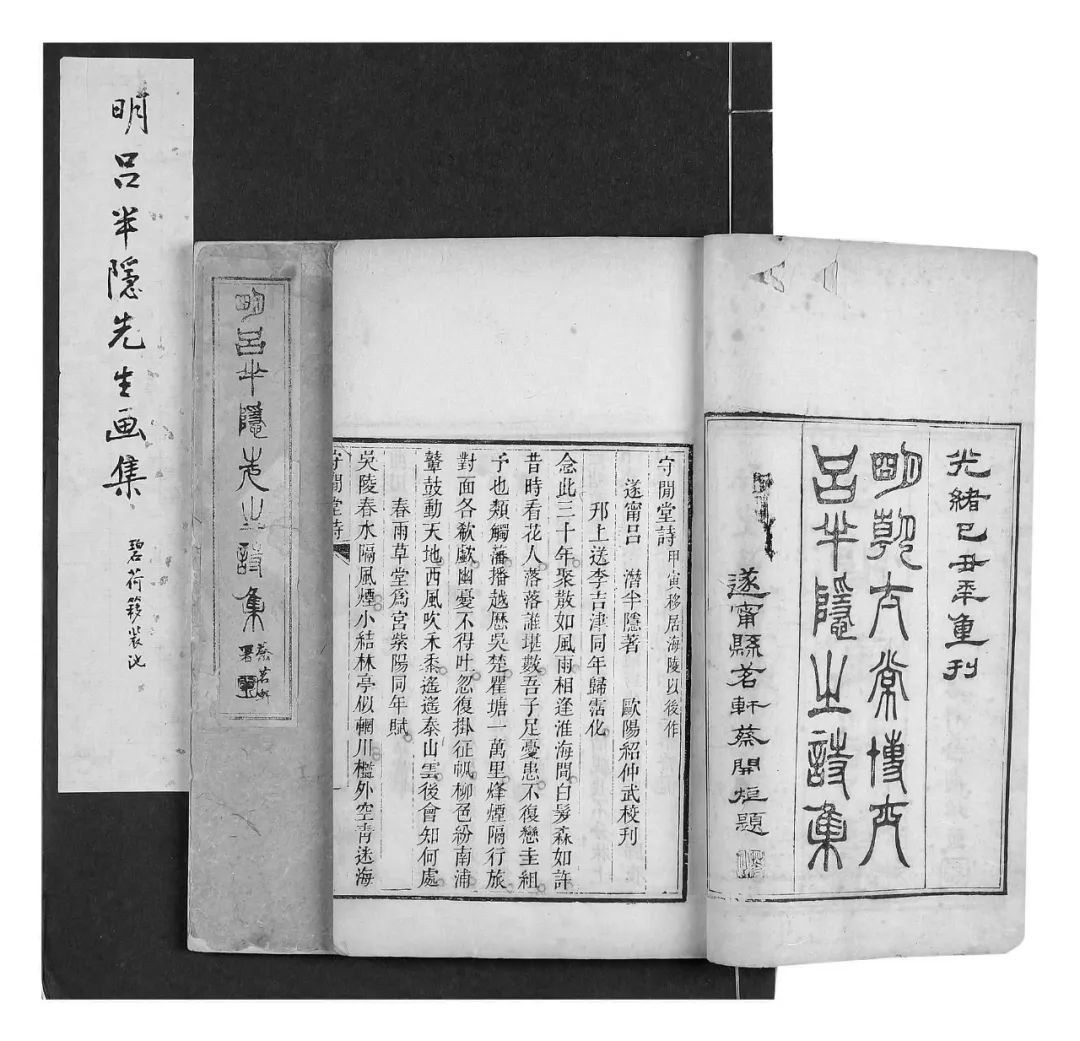 光緒己丑年重刊
明朝太常博士
呂半隱之詩集
遂甯縣茗軒蔡開烜題
守閒堂詩甲寅移居海陵以後作
遂甯呂 潛半隱著 歐陽紹仲武校刊
邗上送李吉津同年歸霑化
念此三十年聚散如風雨相逢淮海間白髮森如許
昔時看花人落落誰堪數吾子足憂患不復戀圭組
予也類觸藩播越歷吳楚瞿塘一萬里烽煙隔行旅
對面各欷歔幽憂不得吐忽復掛征帆柳色紛南浦
鼙鼓動天地西風吹禾黍遙遙泰山雲後會知何處
春雨草堂爲宮紫陽同年賦
吳陵春水隔風煙小結林亭似輞川檻外空青迷海
守閒堂詩
明呂半隱先生詩集
蔡茗軒
署
明吕半隱先生画集
碧荷簃裝池